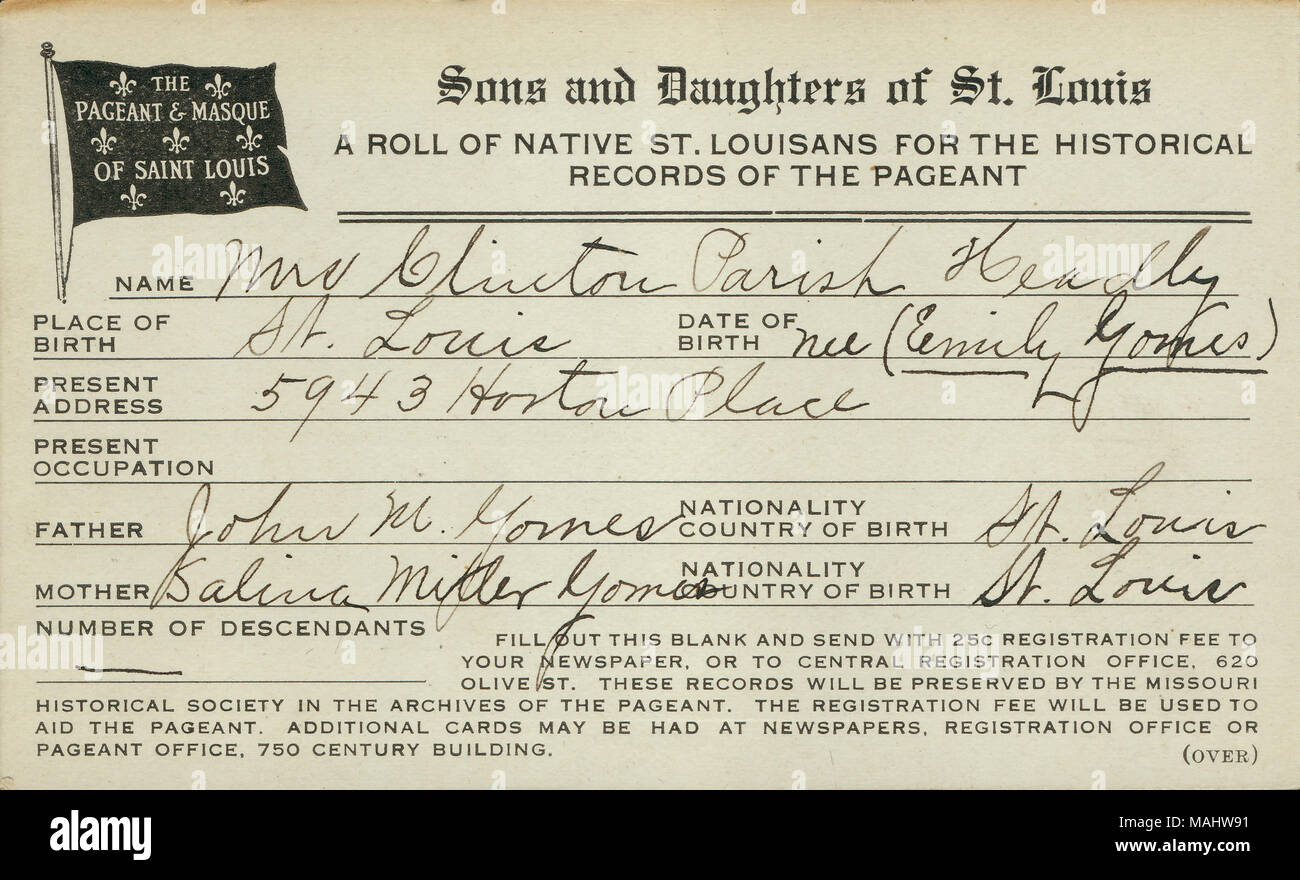 THE
PAGEANT & MASQUE
OF SAINT LOUIS
Sons and Daughters of St. Louis
A ROLL OF NATIVE ST. LOUISANS FOR THE HISTORICAL
RECORDS OF THE PAGEANT
NAME Mrs Clinton Parish Headly
PLACE OF BIRTH St. Louis DATE OF BIRTH nee (Emily Gomes)
PRESENT ADDRESS 5943 Horton Place
PRESENT OCCUPATION
FATHER John M. Gomes NATIONALITY COUNTRY OF BIRTH St. Louis
MOTHER Salina Miller Gomes NATIONALITY COUNTRY OF BIRTH St. Louis
NUMBER OF DESCENDANTS —
FILL OUT THIS BLANK AND SEND WITH 25C REGISTRATION FEE TO
YOUR NEWSPAPER, OR TO CENTRAL REGISTRATION OFFICE, 620
OLIVE ST. THESE RECORDS WILL BE PRESERVED BY THE MISSOURI
HISTORICAL SOCIETY IN THE ARCHIVES OF THE PAGEANT. THE REGISTRATION FEE WILL BE USED TO
AID THE PAGEANT. ADDITIONAL CARDS MAY BE HAD AT NEWSPAPERS, REGISTRATION OFFICE OR
PAGEANT OFFICE, 750 CENTURY BUILDING.
(OVER)
alamy
Image ID: MAHW91
www.alamy.com